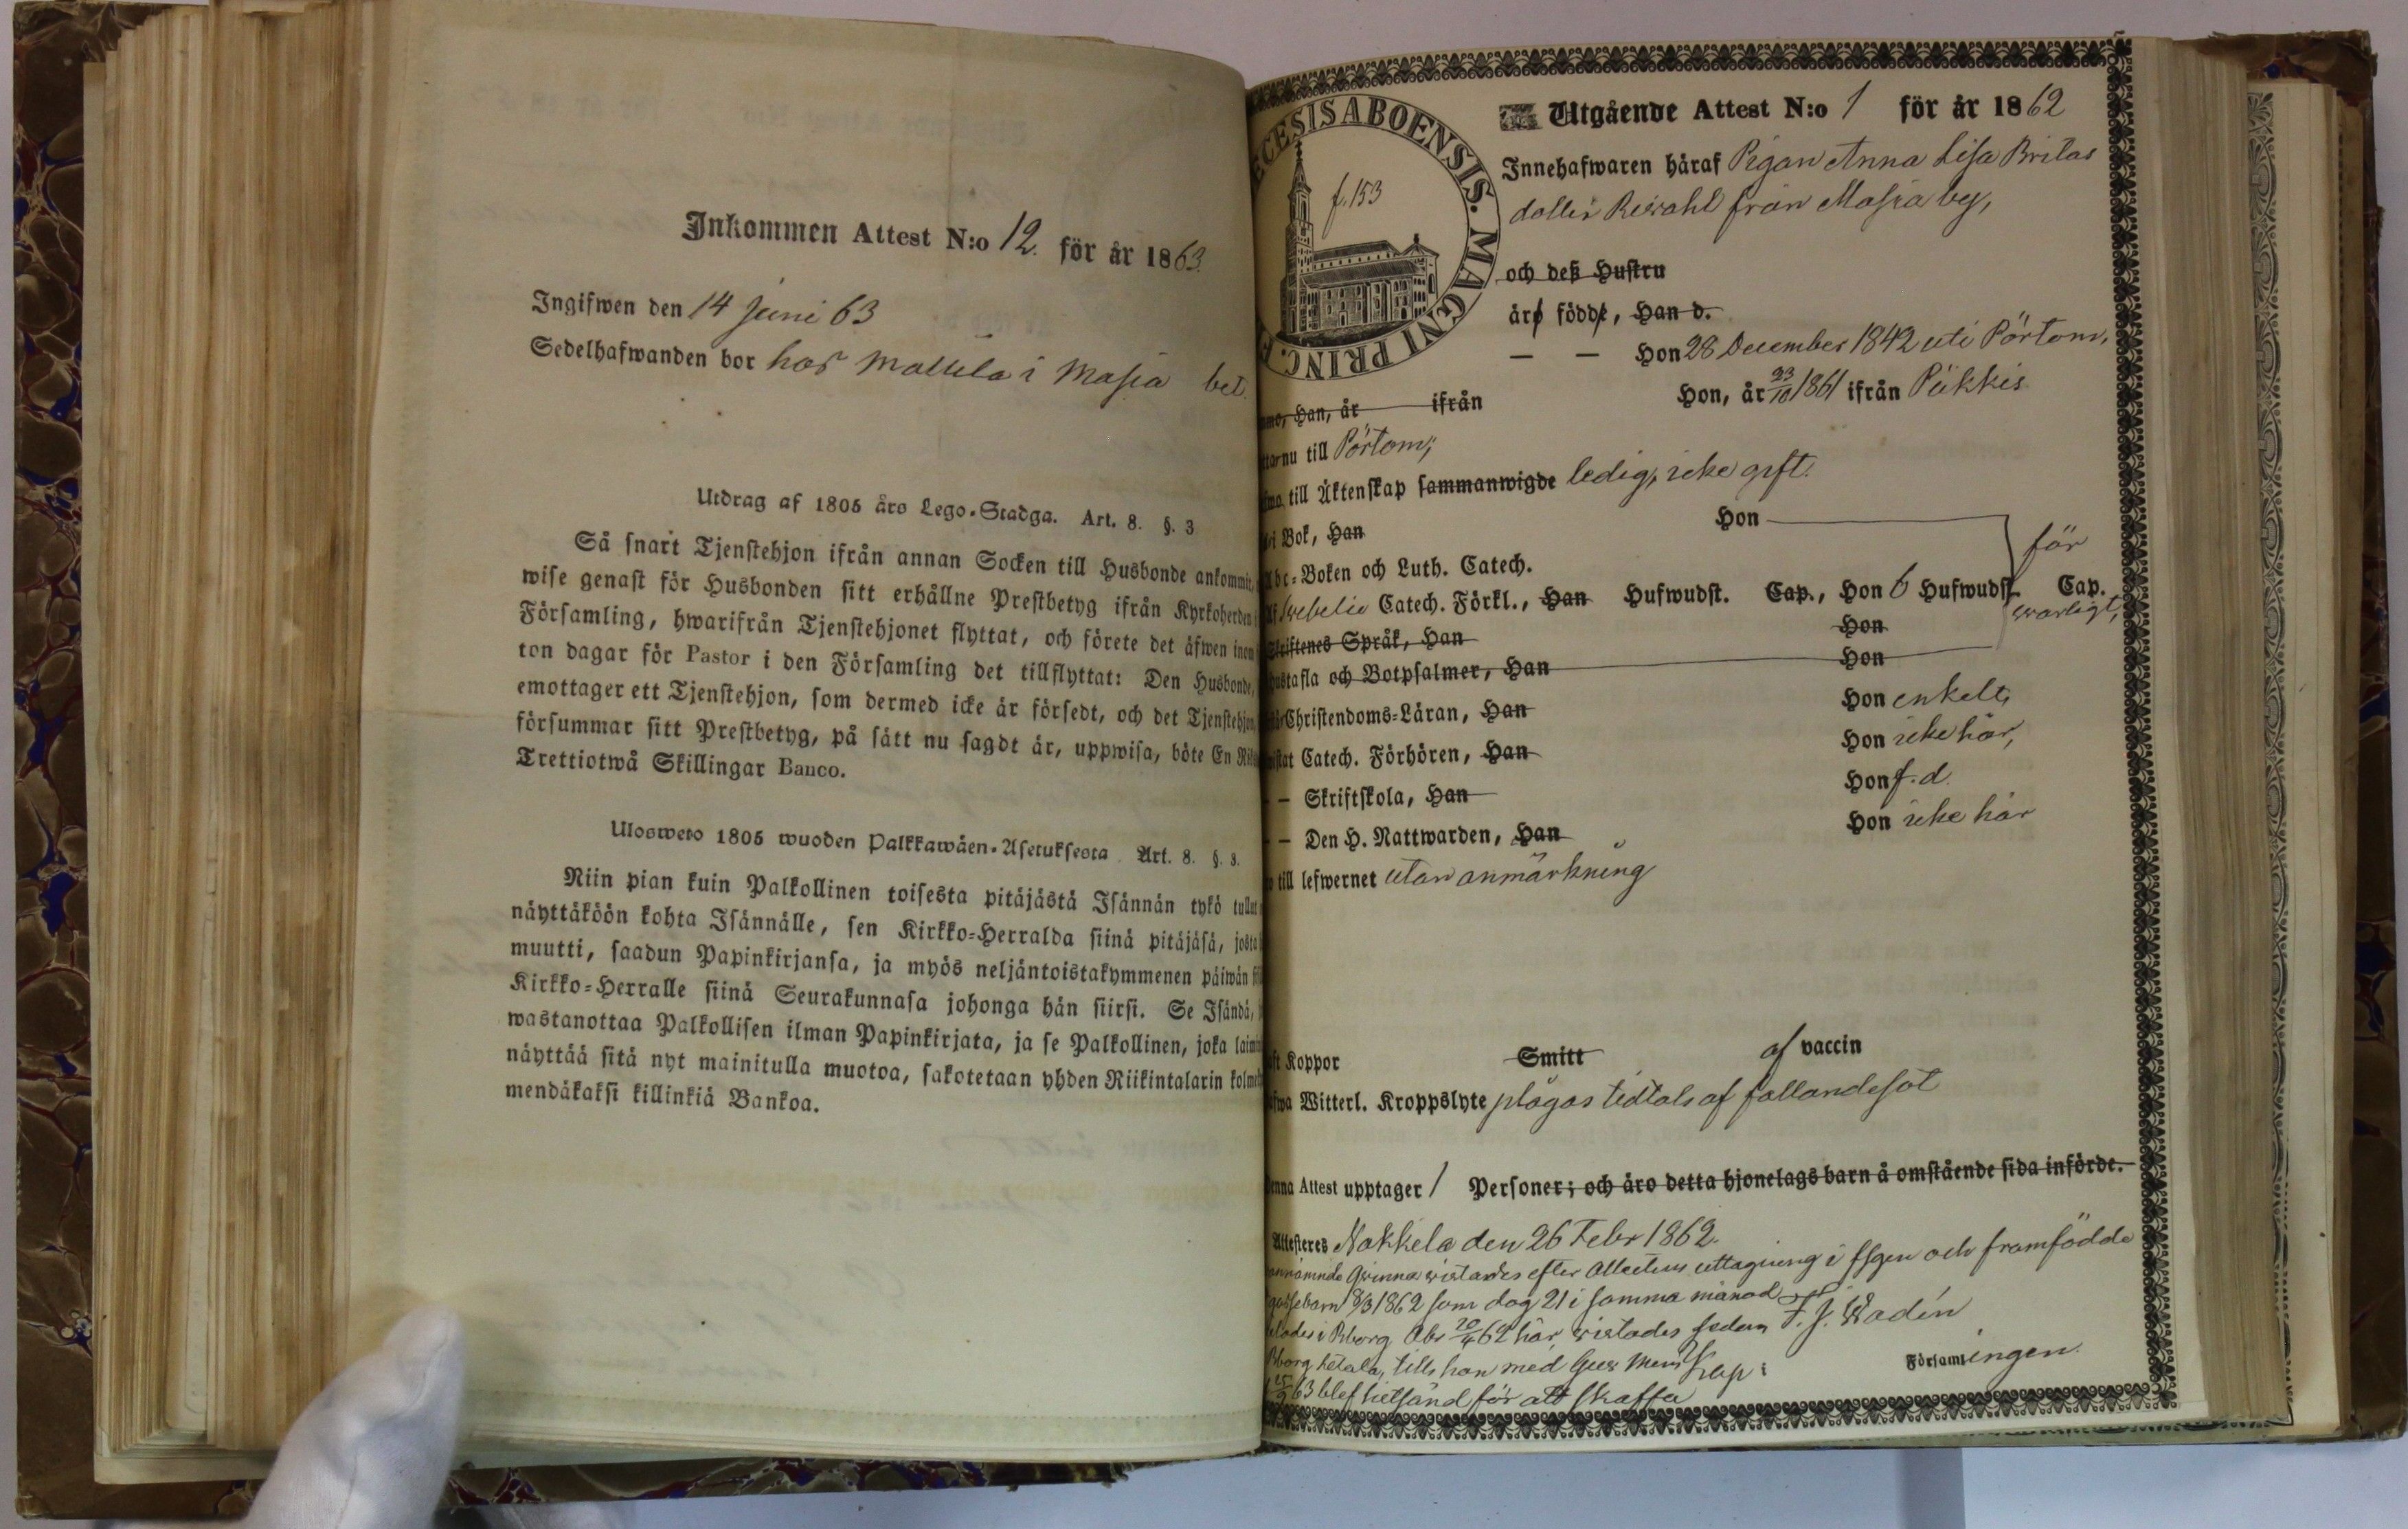 Inkommen Attest N:o 12. för år 1863.
Ingifwen den 14 Juni 63
Sedelhafwanden bor hos Mattila i Masia bet.
Utdrag af 1805 års Lego-Stadga. Art. 8. §. 3
Så snart Tjenstehjon ifrån annan Socken till Husbonde ankommit,
wise genast för Husbonden sitt erhållne Prestbetyg ifrån Kyrkoherden
Församling, hwarifrån Tjenstehjonet flyttat, och förete det äfwen inom
ton dagar för Pastor i den Församling det tillflyttat: Den Husbonde,
emottager ett Tjenstehjon, som dermed icke är försedt, och det Tjenstehjon,
försummar sitt Prestbetyg, på sätt nu sagdt är, uppwisa, böte En
Trettiotwå Skillingar Banco.
Ulosweto 1805 wuoden Palkkawäen-Asetuksesta Art. 8. §. 3.
Niin pian kuin Palkollinen toisesta pitäjästä Isännän tykö tullut
näyttäköön kohta Isännälle, sen Kirkko-Herralda siinä pitäjäsä, josta
muutti, saadun Papinkirjansa, ja myös neljäntoistakymmenen päiwän
Kirkko-Herralle siinä Seurakunnasa johonga hän siirsi. Se Isändä,
wastanottaa Palkollisen ilman Papinkirjata, ja se Palkollinen, joka
näyttää sitä nyt mainitulla muotoa, sakotetaan yhden Riikintalarin
mendäkaksi killinkiä Bankoa.
ECESIS ABOENSIS. MAGNI PRINC. F
f. 153
Utgående Attest N:o 1 för år 1862
Innehafwaren häraf Pigan Anna Lisa Britas
dotter från Masia by,
och deß Hustru
äro födde, Han d.
— — Hon 28 December 1842 uti Pörtom,
Han, år ifrån Hon, år 23/10 1861 ifrån Pikkis
nu till Pörtom,
till Äktenskap sammanwigde ledig, icke gift.
i Bok, Han Hon
Abc-Boken och Luth. Catech. för
Swebelii Catech. Förkl., Han Hufwudst. Cap., Hon 6 Hufwudst. Cap.
swarligt,
Skriftenes Språk, Han Hon
Hustafla och Botpsalmer, Han Hon
Christendoms-Läran, Han Hon enkelt,
Catech. Förhören, Han Hon icke här,
— Skriftskola, Han Hon f. d.
— Den H. Nattwarden, Han Hon icke här
till lefwernet utan anmärkning
Koppor Smitt af vaccin
Witterl. Kroppslyte plågas tidtals af fallandesot
Denna Attest upptager 1 Personer; och äro detta hjonelags barn å omstående sida införde.
Attesteres Nakkila den 26 Febr 1862.
Qwinna wistades efter Attestens uttagning i och framfödde
gossebarn 8/3 1862 som dog 21 i samma månad
i Bborg 20/4 62 här, wistades sedan F. J. Wadén
Bborg tills hon med Kap:
Församlingen.
63 blef hitsänd för att skaffa